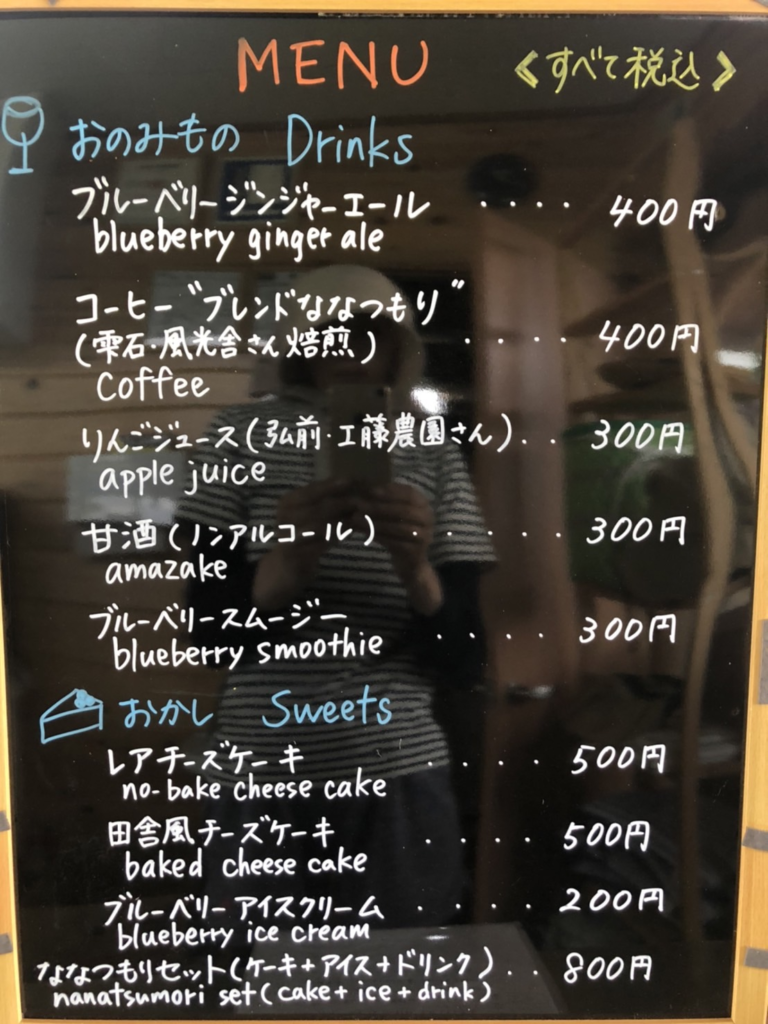 MENU 《すべて税込》
おのみもの Drinks
ブルーベリージンジャーエール ・・・・ 400円
blueberry ginger ale
コーヒー"ブレンドななつもり"
(雫石・風光舎さん焙煎) ・・・・・ 400円
coffee
りんごジュース(弘前・工藤農園さん)・・ 300円
apple juice
甘酒(ノンアルコール) ・・・・・・ 300円
amazake
ブルーベリースムージー ・・・・ 300円
blueberry smoothie
おかし Sweets
レアチーズケーキ ・・・・ 500円
no-bake cheese cake
田舎風チーズケーキ ・・・・ 500円
baked cheese cake
ブルーベリーアイスクリーム ・・・・ 200円
blueberry ice cream
ななつもりセット(ケーキ+アイス+ドリンク)・・ 800円
nanatsumori set(cake+ice+drink)